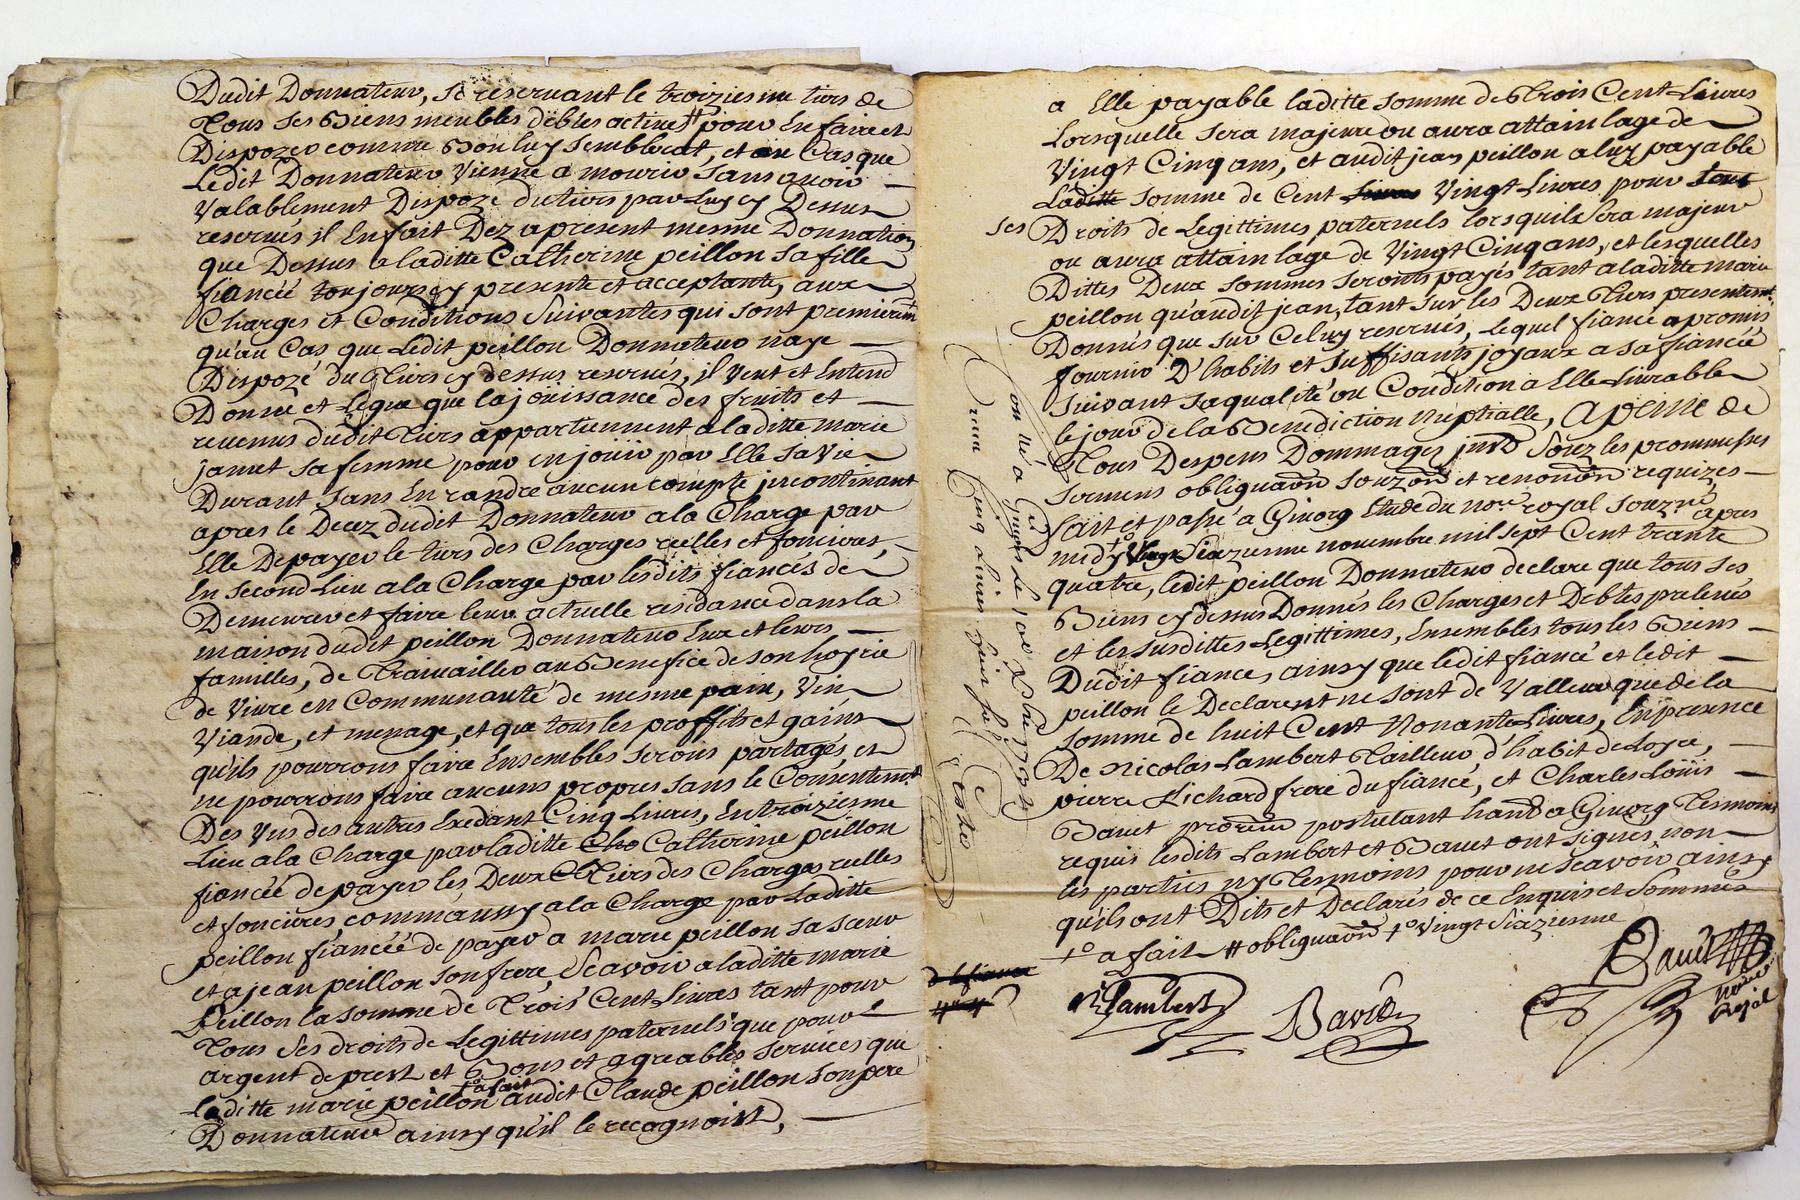 Dudit Donnateur, Se reservant le troiziesme tiers de
Tous ses Biens meubles debtes actives pour En faire et
Dispozer comme Bon luy semblerat, et au Cas que
Ledit Donnateur Vienne a mourir sans avoir
Valablement Dispozé du tiers par Luy cy Dessus
reservés il En fait Dez a present mesme Donnation
que Dessus a laditte Catherine peillon Sa fille
fiancée toujours cy presente et acceptante, aux
Charges et Conditions Suivantes qui sont premierem.t
qu'au Cas que Ledit peillon Donnateur naye
Dispozé du Tiers cy dessus reservés, il Veut et Entend
Donne et Legue que la joüissance des fruits et
revenus dudit Tiers appartiennent a laditte marie
jamet sa femme pour en joüir par Elle sa Vie
Durant sans En randre aucun compte incontinant
apres le Decez dudit Donnateur a la Charge par
Elle De payer le tiers des Charges reelles et foncieres,
En second Lieu a la Charge par lesdits fiancés de
Demeurer et faire leur actuelle residance dans la
maison dudit peillon Donnateur Eux et leurs
familles, de Travailler au Benefice de son hoyrie
de Vivre en Communauté de mesme pain, Vin
Viande, et menage, et que tous les proffits et gains
qu'ils pourrons faire Ensembles Serons partagés, et
ne pourrons faire aucuns propres sans le Consentem.t
Des Uns des autres Exedant Cinq Livres, En troiziesme
Lieu a la Charge par laditte Cho Catherine peillon
fiancée de payer les Deux Tiers des Charges reelles
et foncieres, comm'aussy a la Charge par Laditte
peillon fiancée de payer a marie peillon sa sœur
et a jean peillon son frere, Scavoir a laditte marie
Peillon la somme de Trois Cent Livres tant pour
Tous Ses droits de Legittimes paternels que pour
argent de prest et Bons et agreables services que
+° a fait
Laditte marie peillon audit Claude peillon son pere
Donnateur ainsy qu'il le recognoist,
a Elle payable laditte somme de Trois Cent Livres
Lorsquelle sera majeure ou aura attain lage de
Vingt Cinq ans, et audit jean peillon a luy payable
Laditte somme de Cent Livres Vingt Livres pour tout
ses Droits de Legittimes paternels lorsquil Sera majeur
ou aura attain lage de Vingt Cinq ans, et lesquelles
Dittes Deux sommes seronts payés tant a laditte marie
peillon qu'audit jean, tant sur les Deux Tiers presentem.t
Donnés que sur Celuy reservés, Lequel fiancé a promis
fournir D'habits et Suffisants joyaux a sa fiancée
Suivant sa qualité ou Condition a Elle Livrable
le jour de la Benediction nuptialle, a peine de
Tous Despens Dommages Souz les prommesses
Sermens obliguaon et requizes
Fait et passé a Givorg Etude du no.re royal souz.né apres
midy Vingt Siazesme novembre mil sept Cent trante
quatre, ledit peillon Donnateur declare que tous ses
Biens cy dessus Donnés les Charges et Debtes prelevés
et les susdittes Legittimes, Ensembles tous les Biens
Dudit fiance, ainsy que ledit fiancé et ledit
peillon le Declarent ne sont de Valleur que de la
somme de huit Cent Nonante Livres, En presence
De Nicolas Lambert Tailleur d'habit de Loyre,
pierre Richard frere du fiancé, et Charles Loüis
postulant a Givorg Tesmoins
requis lesdits Lambert et ont signés, non
les parties ny Tesmoins pour ne Scavoir ainsy
qu'ils ont Dits et Declarés de ce Enquis et Sommés
+° a fait # obliguaon +° Vingt Siazesme
Lambert
Notaire
Royal